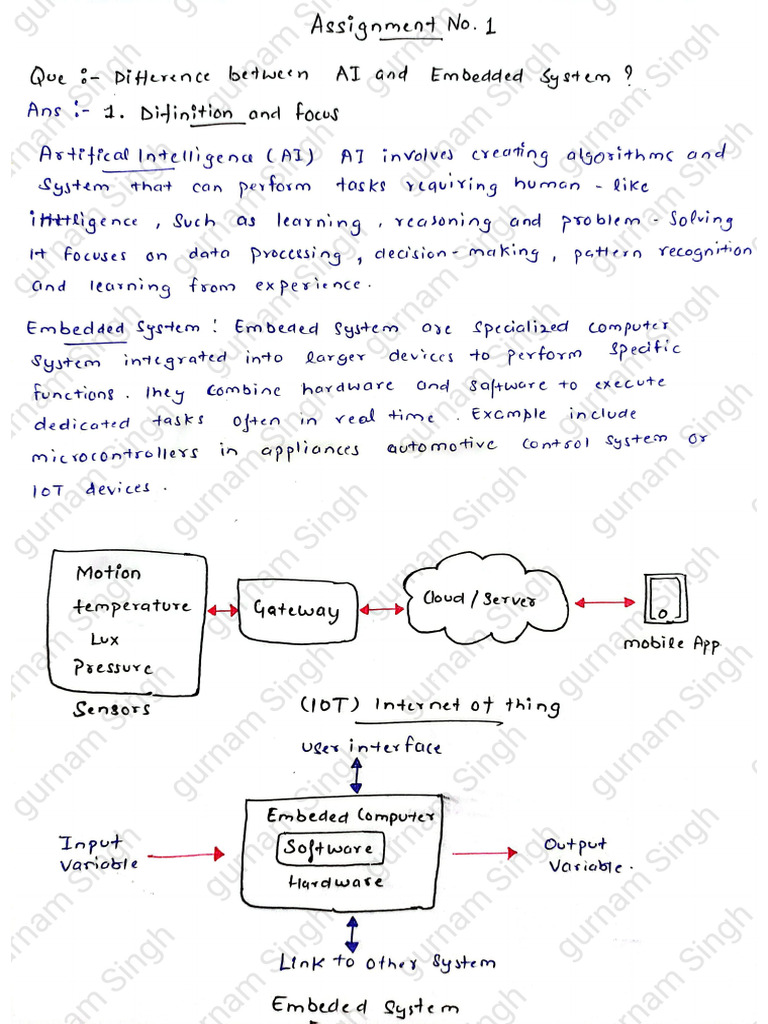 Assignment No. 1
Que :- Difference between AI and Embedded System ?
Ans :- 1. Difinition and focus
Artifical Intelligence (AI) AI involves creating algorithms and
System that can perform tasks requiring human - like
, Such as learning , reasoning and problem - Solving
It focuses on data processing , decision - making , pattern recognition
and learning from experience .
Embedded System : Embeded System are specialized computer
System integrated into larger devices to perform specific
functions . They combine hardware and software to execute
dedicated tasks often in real time . Example include
microcontrollers in appliances automotive control system or
IOT devices .
Motion
temperature
Lux
Pressure
Sensors
Gateway
Cloud / Server
mobile App
(IOT) Internet of thing
user interface
Input
Variable
Embeded Computer
Software
Hardware
Output
Variable .
Link to other System
Embeded System
gurnam Singh